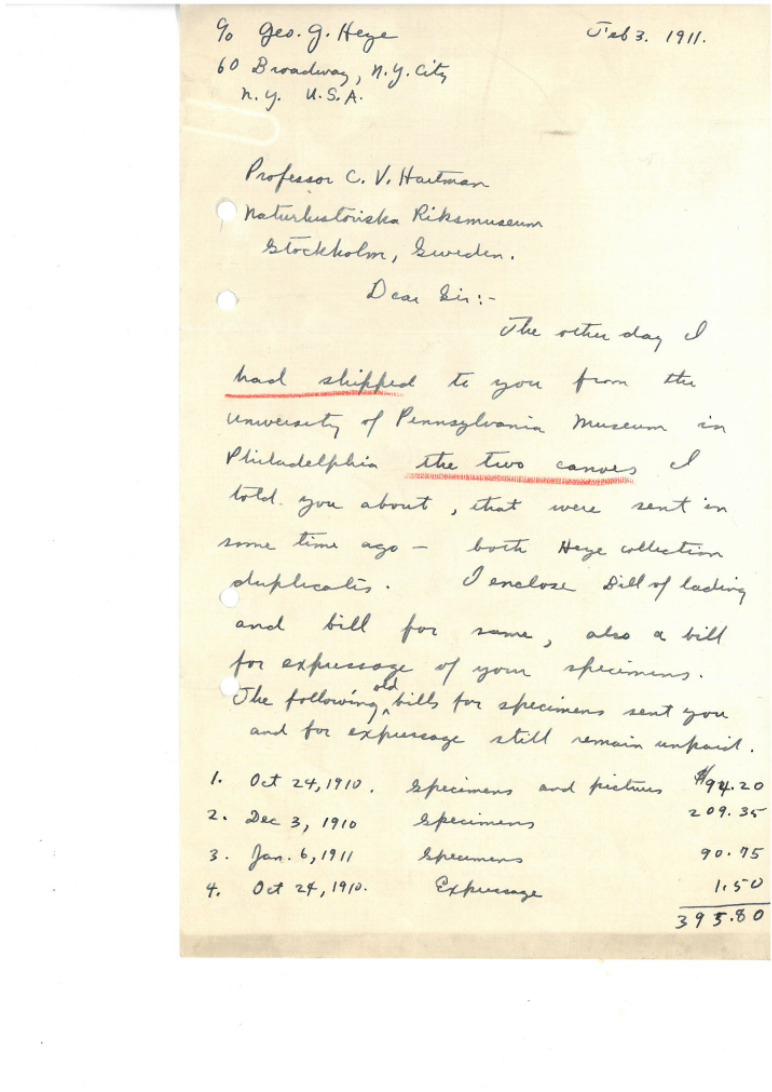 c/o Geo. G. Heye Feb 3. 1911.
60 Broadway, N.Y. City
N.Y. U.S.A.
Professor C. V. Hartman
Naturhistoriska Riksmuseum
Stockholm, Sweden.
Dear Sir:-
The other day I
had shipped to you from the
University of Pennsylvania Museum in
Philadelphia the two canoes I
told you about, that were sent in
some time ago — both Heye collection
duplicates. I enclose Bill of lading
and bill for same, also a bill
for expressage of your specimens.
The following old bills for specimens sent you
and for expressage still remain unpaid.
1. Oct 24, 1910. Specimens and pictures $94.20
2. Dec 3, 1910 Specimens 209.35
3. Jan. 6, 1911 Specimens 90.75
4. Oct 24, 1910. Expressage 1.50
395.80